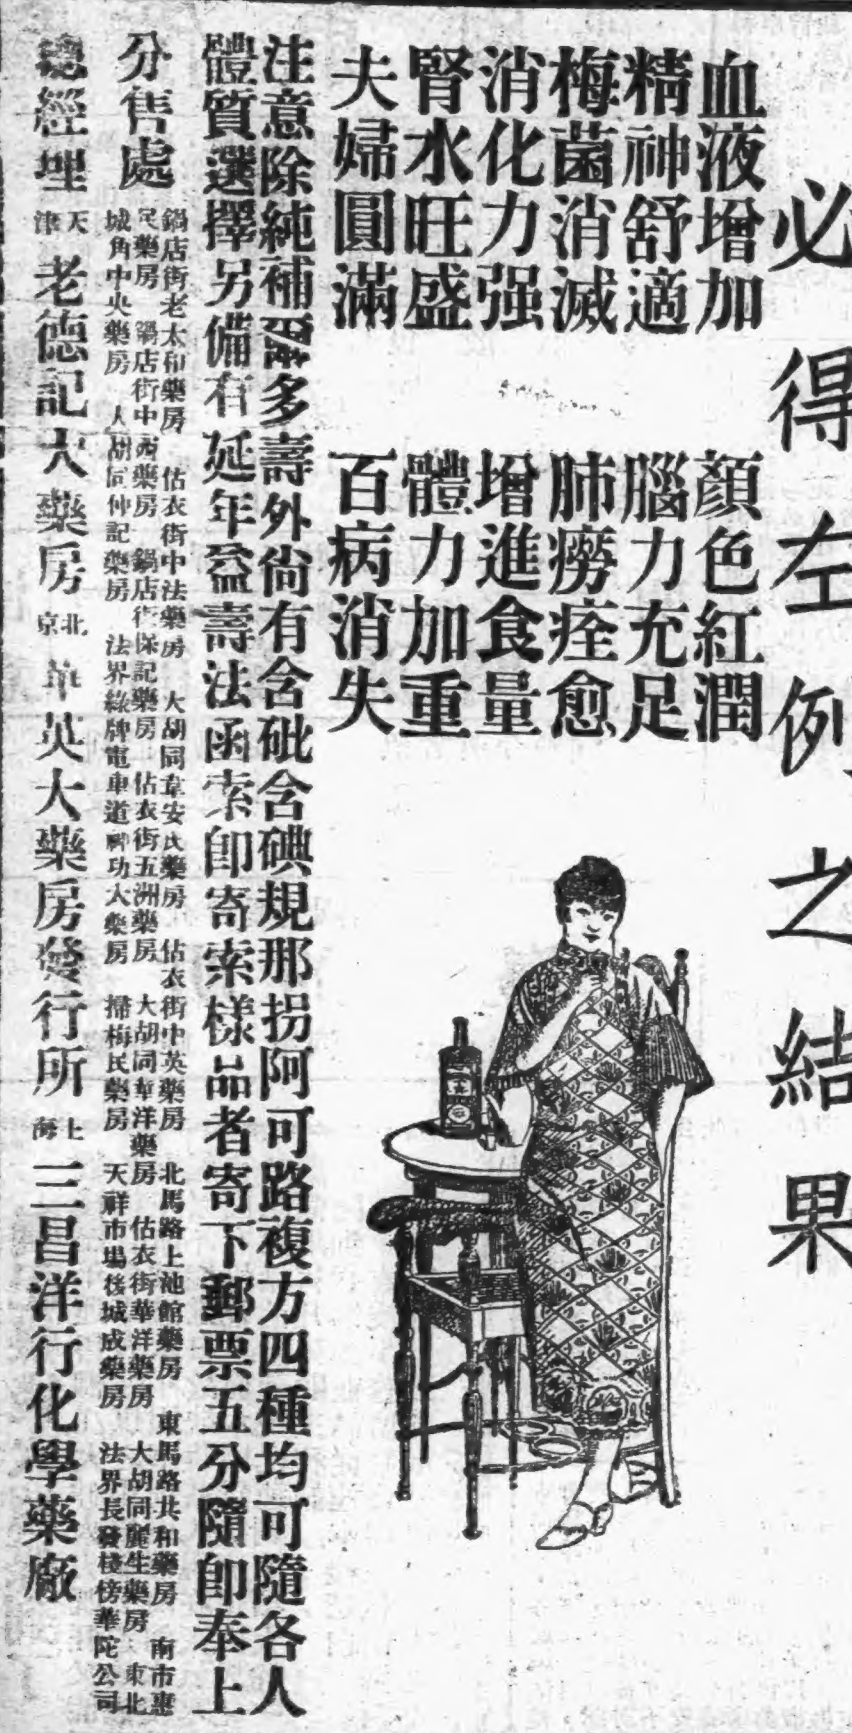 必得左例之結果
血液增加 顏色紅潤
精神舒適 腦力充足
梅菌消滅 肺癆痊愈
消化力强 增進食量
腎水旺盛 體力加重
夫婦圓滿 百病消失
注意除純補爾多壽外尙有含砒含碘規那拐阿可路複方四種均可隨各人
體質選擇另備有延年益壽法函索卽寄索樣品者寄下郵票五分隨卽奉上
分售處
鍋店街老太和藥房 估衣街中法藥房 大胡同韋安氏藥房 估衣街中英藥房 北馬路上池館藥房 東馬路共和藥房 南市惠
民藥房 鍋店街中西藥房 鍋店街保記藥房 估衣街五洲藥房 大胡同華洋藥房 估衣街華洋藥房 大胡同麗生藥房 東北
城角中央藥房 大胡同仲記藥房 法界綠牌電車道神功大藥房 掃梅民藥房 天祥市場後城成藥房 法界長發棧傍華陀公司
總經理 天津 老德記大藥房 北京 華英大藥房發行所 上海 三昌洋行化學藥廠